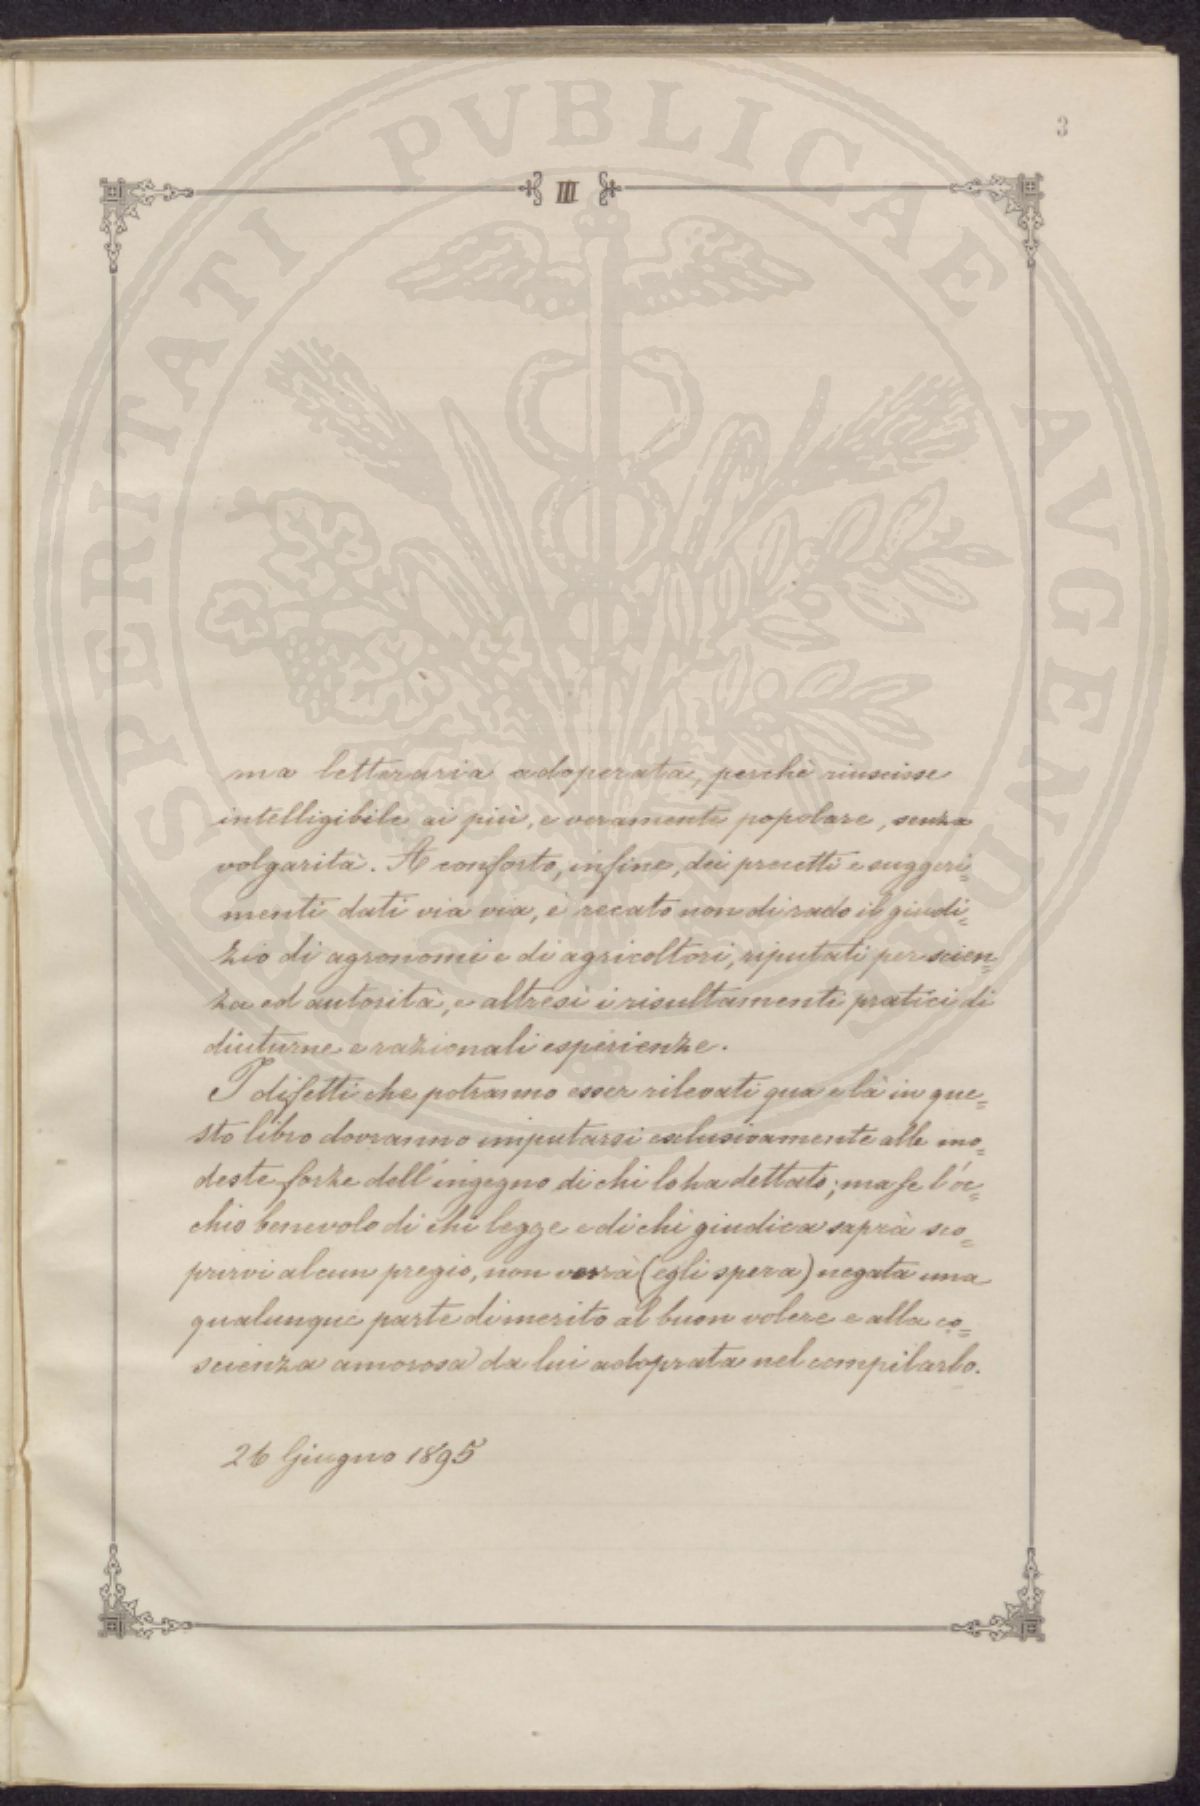 3
III
PROSPERITATI PVBLICAE AVGENDAE
ma letteraria adoperata, perchè riuscisse
intelligibile ai più, e veramente popolare, senza
volgarità. A conforto, infine, dei precetti e suggeri=
menti dati via via, è recato non di rado il giudi=
zio di agronomi e di agricoltori, riputati per scien=
za ed autorità, e altresì i risultamenti pratici di
diuturne e razionali esperienze.
I difetti che potranno esser rilevati qua e là in que=
sto libro dovranno imputarsi esclusivamente alle mo=
deste forze dell'ingegno di chi lo ha dettato; ma se l'oc=
chio benevolo di chi legge e di chi giudica saprà sco=
prirvi alcun pregio, non verrà (egli spera) negata una
qualunque parte di merito al buon volere e alla co=
scienza amorosa da lui adoprata nel compilarlo.
26 Giugno 1895